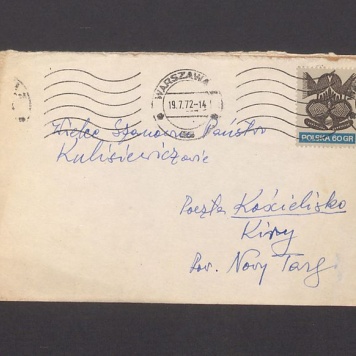 WARSZAWA
19.7.72-14
POLSKA 60 GR
Wielce Szanowni Państwo
Kulisiewiczowie
Poczta Kościelisko
Kiry
Pow. Nowy Targ